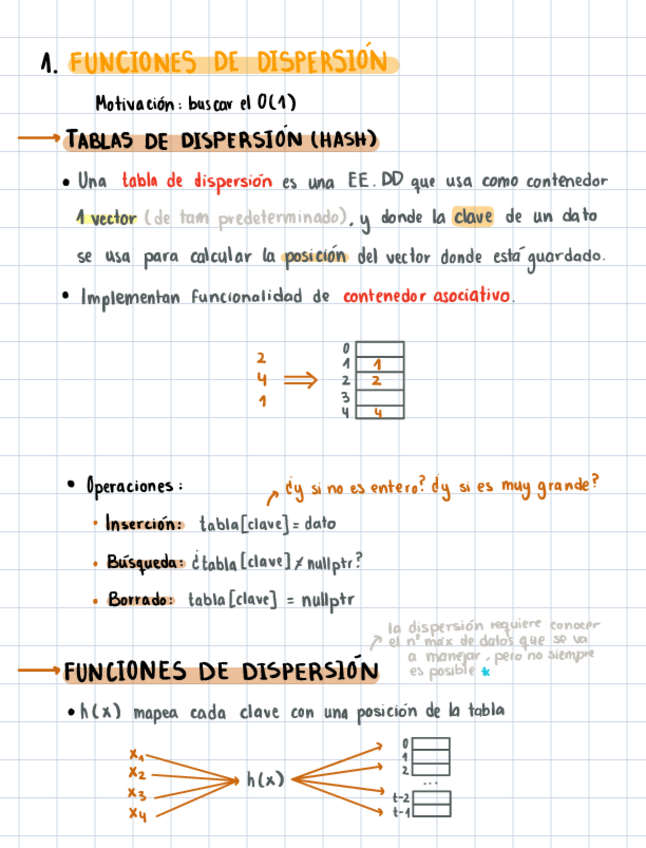 1. FUNCIONES DE DISPERSIÓN
Motivación: buscar el O(1)
TABLAS DE DISPERSIÓN (HASH)
• Una tabla de dispersión es una EE.DD que usa como contenedor
1 vector (de tam predeterminado), y donde la clave de un dato
se usa para calcular la posición del vector donde está guardado.
• Implementan funcionalidad de contenedor asociativo.
2
4
1
0
1 1
2 2
3
4 4
• Operaciones:
¿y si no es entero? ¿y si es muy grande?
• Inserción: tabla[clave] = dato
• Búsqueda: ¿tabla[clave] ≠ nullptr?
• Borrado: tabla[clave] = nullptr
la dispersión requiere conocer
el nº máx de datos que se va
a manejar, pero no siempre
es posible *
FUNCIONES DE DISPERSIÓN
• h(x) mapea cada clave con una posición de la tabla
x₁
x₂
x₃
x₄
h(x)
0
1
2
...
t-2
t-1